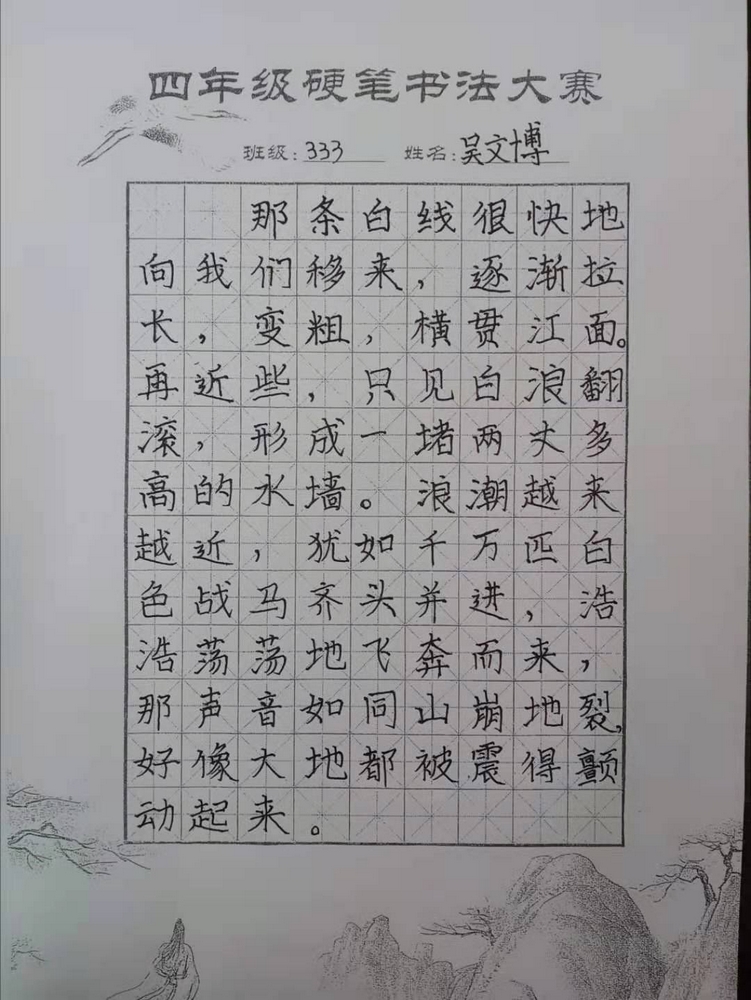 四年级硬笔书法大赛
班级：333 姓名：吴文博
那条白线很快地
向我们移来，逐渐拉
长，变粗，横贯江面。
再近些，只见白浪翻
滚，形成一堵两丈多
高的水墙。浪潮越来
越近，犹如千万匹白
色战马齐头并进，浩
浩荡荡地飞奔而来，
那声音如同山崩地裂，
好像大地都被震得颤
动起来。